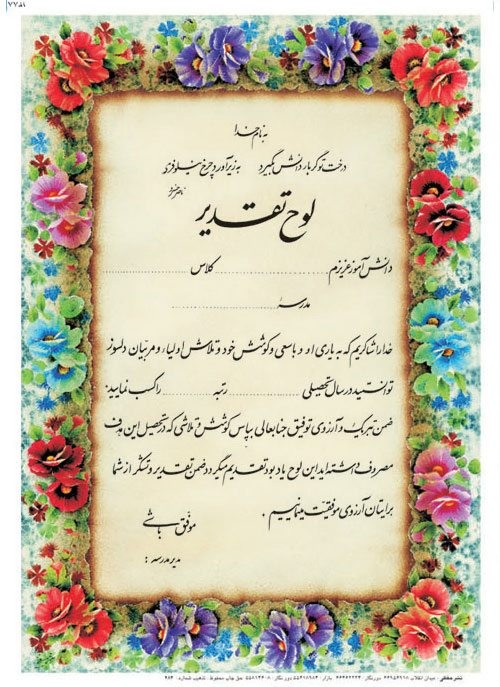 ۷۷۵۱
به نام خدا
درخت تو گر بار دانش بگیرد به زیر آوری چرخ نیلوفری
ناصر خسرو
لوح تقدیر
دانش آموز عزیزم .................... کلاس ....................
مدرسهٔ ....................
خدا را شاکریم که به یاری او و با سعی و کوشش خود و تلاش اولیاء و مربیان دلسوز
توانستید در سال تحصیلی .................... رتبه .................... را کسب نمایید.
ضمن تبریک و آرزوی توفیق جنابعالی بپاس کوشش و تلاشی که در تحصیل این هدف
مصروف داشته‌اید این لوح یادبود تقدیم میگردد ضمن تقدیر و تشکر از شما
برایتان آرزوی موفقیت مینماییم .
موفق باشی
مدیر مدرسه :
میدان انقلاب دورنگار بازار دورنگار حق چاپ محفوظ